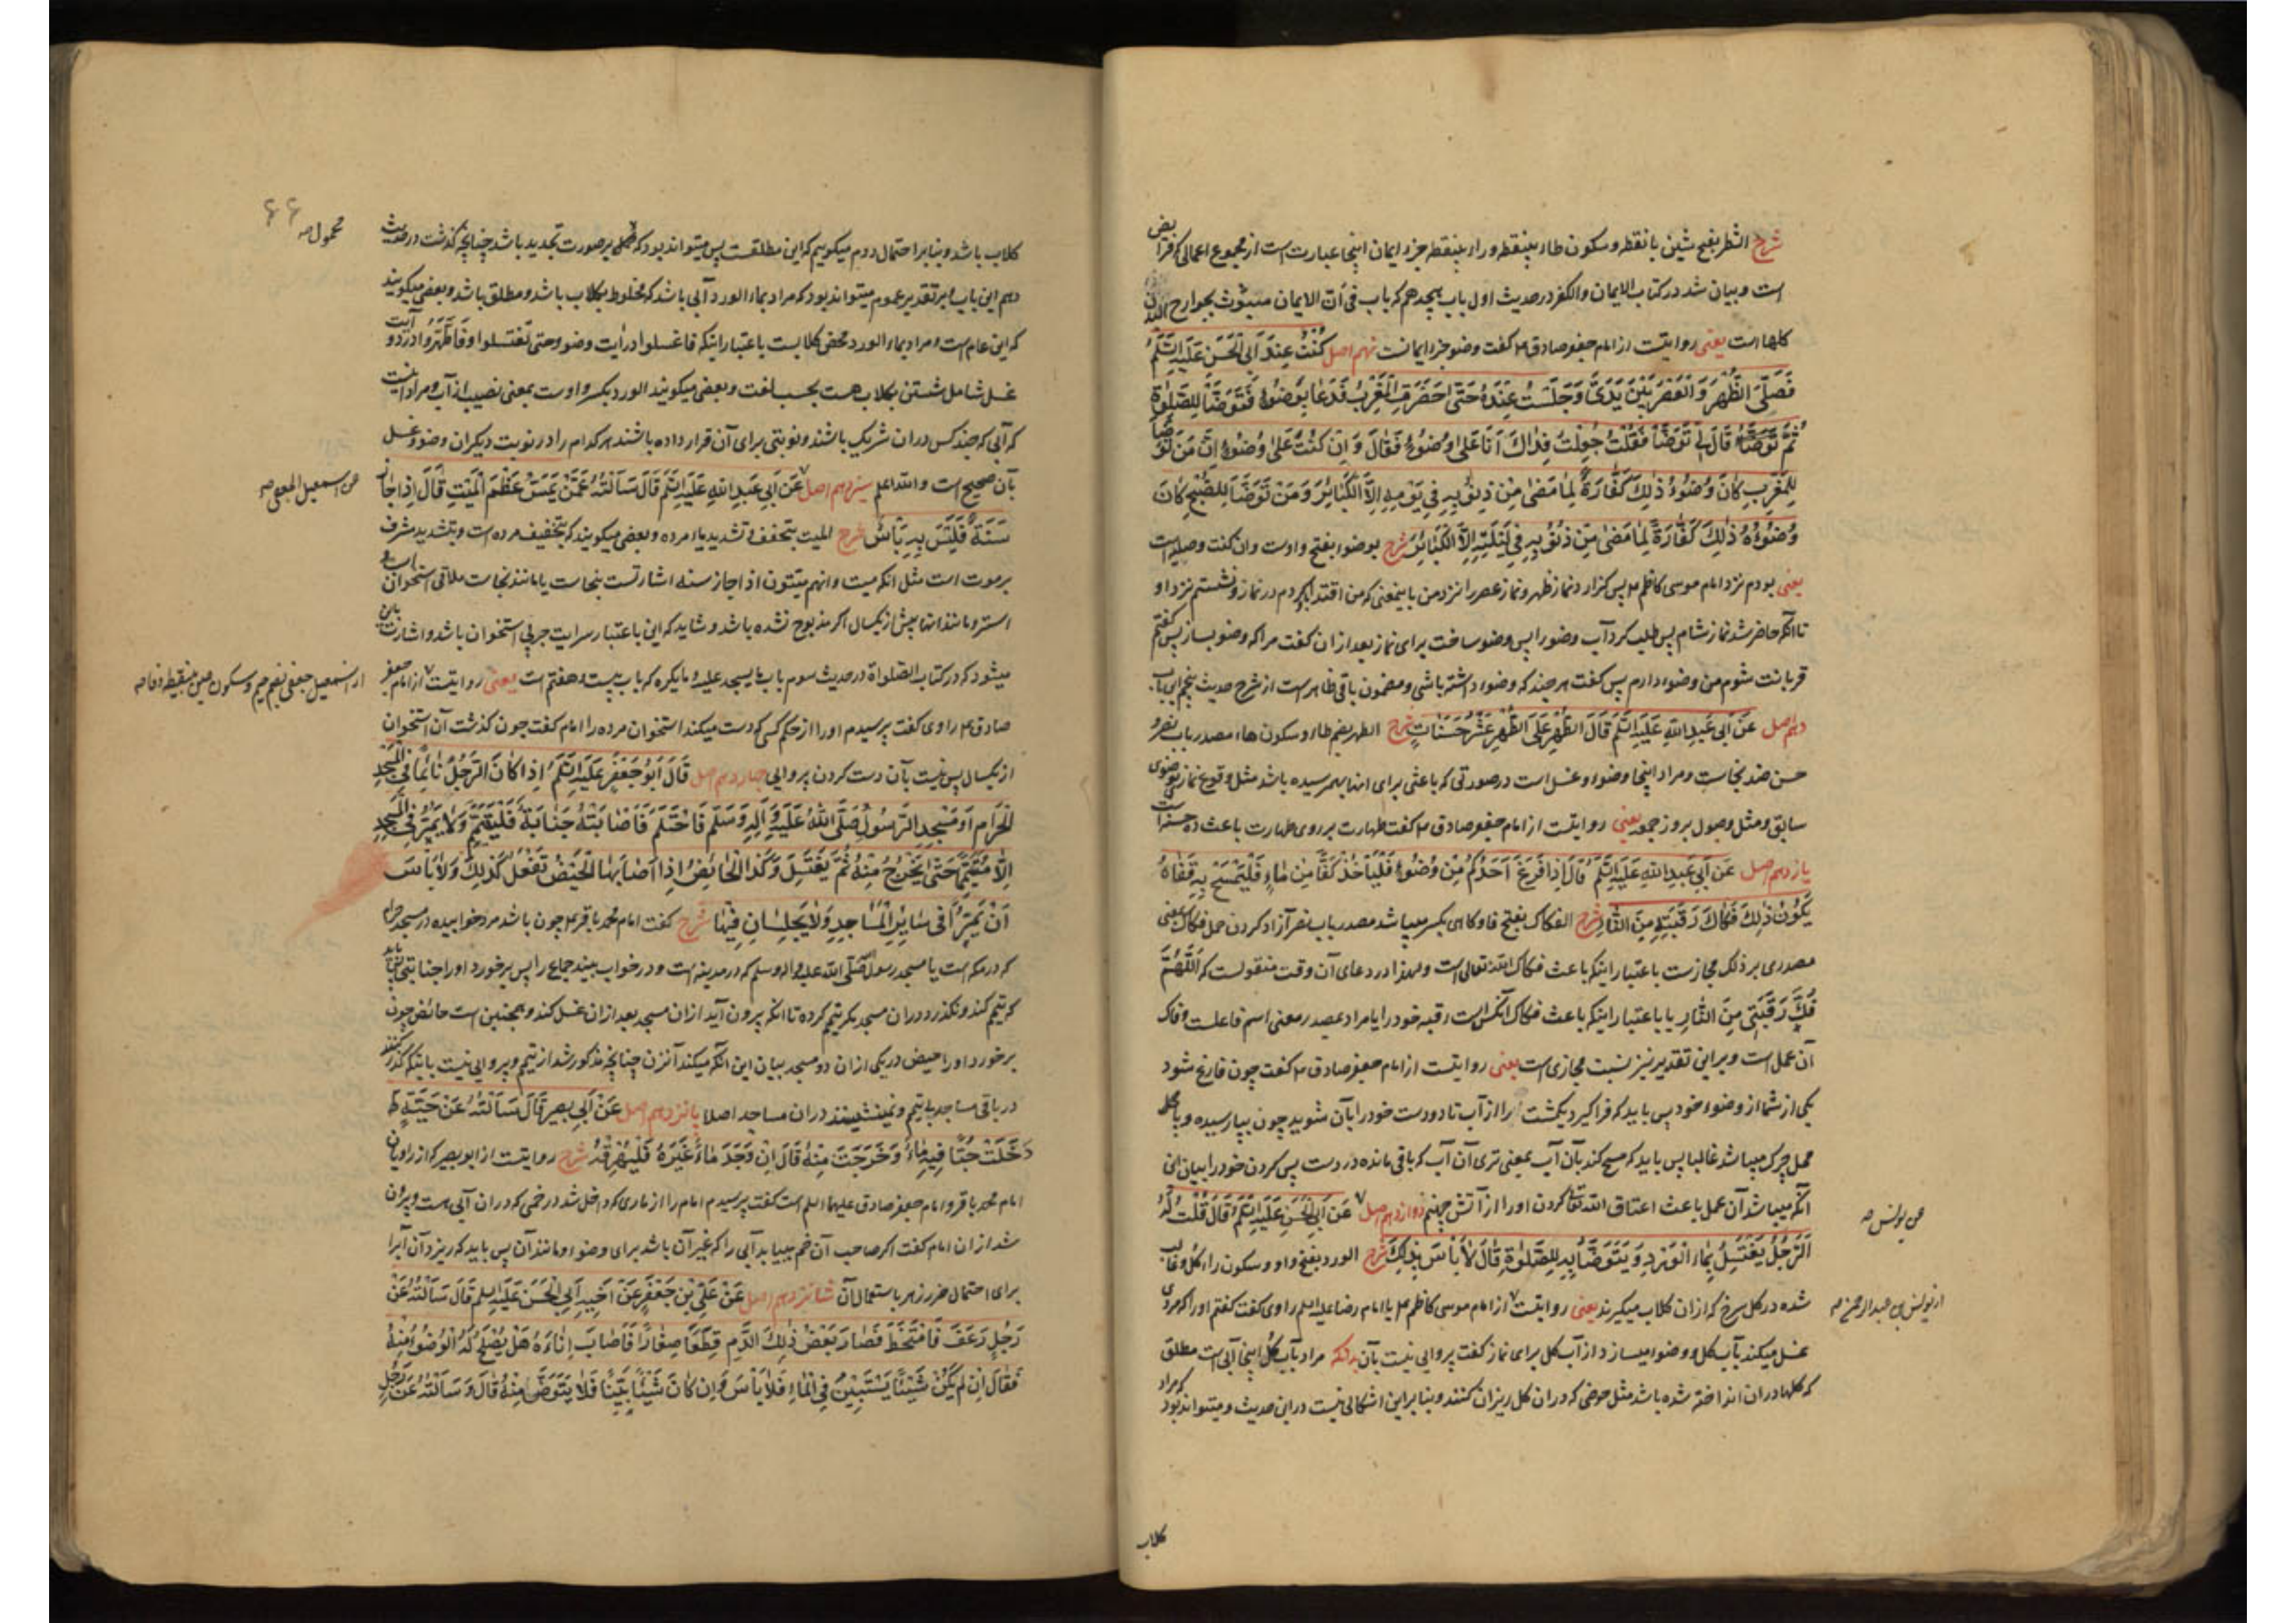 شرح الشطر بفتح شین با نقطه و سکون طاء بینقطه و راء بینقطه جزء ایمان اینجا عبارتست از مجموع اعمالی که فرایض
است و بیان شد در کتاب الایمان والکفر در حدیث اول باب هیجدهم که باب فی ان الایمان مبثوث بجوارح البدن
کلها است یعنی روایتست از امام جعفر صادق ع گفت وضو جزء ایمانست نهم اصل کُنْتُ عِنْدَ أَبِی الْحَسَنِ عَلَیْهِ السَّلَمُ
فَصَلَّى الظُّهْرَ وَالْعَصْرَ بَیْنَ یَدَیَّ وَجَلَسْتُ عِنْدَهُ حَتّٰى حَضَرَتِ الْمَغْرِبُ فَدَعَا بِوَضُوءٍ فَتَوَضَّأَ لِلصَّلٰوةِ
ثُمَّ قَالَ لِی تَوَضَّأْ فَقُلْتُ جُعِلْتُ فِدَاكَ أَنَا عَلٰى وُضُوءٍ فَقَالَ وَاِنْ كُنْتَ عَلٰى وُضُوءٍ اِنَّ مَنْ تَوَضَّأَ
لِلْمَغْرِبِ كَانَ وُضُوءُهُ ذٰلِكَ كَفَّارَةً لِمَا مَضٰى مِنْ ذُنُوبِهِ فِی یَوْمِهِ اِلَّا الْكَبَائِرَ وَمَنْ تَوَضَّأَ لِلصُّبْحِ كَانَ
وُضُوءُهُ ذٰلِكَ كَفَّارَةً لِمَا مَضٰى مِنْ ذُنُوبِهِ فِی لَیْلَتِهِ اِلَّا الْكَبَائِرَ شرح بوضوء بفتح واوست وان کنت وصلیه است
یعنی بودم نزد امام موسی کاظم ع پس گزارد نماز ظهر و نماز عصر را نزد من باینمعنی که من اقتدا باو کردم در نماز و نشستم نزد او
تا آنکه حاضر شد نماز شام پس طلب کرد آب وضو را پس وضو ساخت برای نماز بعد از ان گفت مرا که وضو بساز پس گفتم
قربانت شوم من وضوء دارم پس گفت هر چند که وضوء داشته باشی و مضمون باقی ظاهرست از شرح حدیث پنجم این باب
دهم اصل عَنْ أَبِی عَبْدِ اللهِ عَلَیْهِ السَّلَمُ قَالَ الطُّهْرُ عَلَى الطُّهْرِ عَشْرُ حَسَنَاتٍ شرح الطهر بضم طاء و سکون هاء مصدر باب نصر و
حسن ضد نجاست و مراد اینجا وضوء و غسل است در صورتی که باعثی برای انها بهم رسیده باشد مثل وقوع نماز بوضوی
سابق و مثل وصول بروز جمعه یعنی روایتست از امام جعفر صادق ع گفت طهارت بر روی طهارت باعث ده حسنه است
یازدهم اصل عَنْ أَبِی عَبْدِ اللهِ عَلَیْهِ السَّلَمُ قَالَ اِذَا فَرَغَ أَحَدُكُمْ مِنْ وُضُوءٍ فَلْیَأْخُذْ كَفًّا مِنْ مَاءٍ فَلْیَمْسَحْ بِهِ قَفَاهُ
یَكُونُ ذٰلِكَ فَكَاكَ رَقَبَتِهِ مِنَ النَّارِ شرح الفکاک بفتح فا و گاهی بکسر میباشد مصدر باب نصر آزاد کردن حمل فکاک بمعنی
مصدری بر ذلک مجازست باعتبار اینکه باعث فکاک الله تعالی است و لهذا در دعای آن وقت منقولست که اَللّٰهُمَّ
فُكَّ رَقَبَتِی مِنَ النَّارِ یا باعتبار اینکه باعث فکاک آنکس است رقبه خود را یا مراد بمصدر معنی اسم فاعلست و فاک
آن عمل است و بر این تقدیر نیز نسبت مجازی است یعنی روایتست از امام جعفر صادق ع گفت چون فارغ شود
یکی از شما از وضوء خود پس باید که فراگیرد یکمشت را از آب تا دو دست خود را بآن شوید چون بپا رسیده و پا محل
محل چرک میباشد غالبا پس باید که مسح کند بآن آب بمعنی تری آن آب که باقی مانده در دست پس کردن خود را بیان این
آنکه میباشد آن عمل باعث اعتاق الله تعالی کردن اورا از آتش جهنم دوازدهم اصل عَنْ أَبِی الْحَسَنِ عَلَیْهِ السَّلَمُ قَالَ قُلْتُ لَهُ
عن یونس صه
اَلرَّجُلُ یَغْتَسِلُ بِمَاءِ الْوَرْدِ وَیَتَوَضَّأُ بِهِ لِلصَّلٰوةِ قَالَ لَا بَأْسَ بِذٰلِكَ شرح الورد بفتح واو و سکون راء گل و غالب
شده در گل سرخ که از ان گلاب میگیرند یعنی روایتست از امام موسی کاظم ع یا امام رضا علیه السلم راوی گفت گفتم اورا که مردی
از یونس بن عبد الرحمن صه
غسل میکند بآب گل و وضو میسازد از آب گل برای نماز گفت پروایی نیست بآن بدانکه مراد بآب گل اینجا آبی است مطلق
که گلها در ان انداخته شده باشد مثل حوضی که در ان گل ریزان کنند و بنا بر این اشکالی نیست در این حدیث و میتواند بود که مراد
گلاب
۶۶
گلاب باشد و بنا بر احتمال دوم میگوییم که این مطلقست پس میتواند بود که محمول بر صورت تجدید باشد چنانچه گذشت در حدیث
محمول صه
دهم این باب و بر تقدیر عموم میتواند بود که مراد بماء الورد آبی باشد که مخلوط بگلاب باشد و مطلق باشد و بعضی میگویند
که این عام است و مراد بماء الورد محض گلابست باعتبار اینکه فاغسلوا در آیت وضو و حتی تغتسلوا و فاطهروا در دو آیت
غسل شامل شستن بگلاب هست بحسب لغت و بعضی میگویند الورد بکسر واوست بمعنی نصیب از آب و مراد اینست
که آبی که چند کس در ان شریک باشند و نوبتی برای آن قرار داده باشند هر کدام را در نوبت دیگران وضو و غسل
بآن صحیح است والله اعلم سیزدهم اصل عَنْ أَبِی عَبْدِ اللهِ عَلَیْهِ السَّلَمُ قَالَ سَأَلْتُهُ عَمَّنْ یَمَسُّ عَظْمَ الْمَیِّتِ قَالَ اِذَا جَازَ
عن اسمعیل الجعفی صه
سَنَةً فَلَیْسَ بِهِ بَأْسٌ شرح المیت بتخفیف و تشدید یاء مرده و بعضی میگویند که بتخفیف مرده است و بتشدید مشرف
بر موت است مثل انک میت وانهم میتون اذا جاز سنه اشارتست بنجاست یا مانند نجاست ملاقی استخوان اسب و
استر و مانند انها پیش از یکسال اگر مذبوح نشده باشد و شاید که این باعتبار سرایت چربی استخوان باشد و اشارت باین
میشود که در کتاب الصلواة در حدیث سوم باب ما یسجد علیه و ما یکره که باب بیست و هفتم است یعنی روایتست از امام جعفر
از اسمعیل جعفی بضم جیم و سکون عین بینقطه و فا صه
صادق ع راوی گفت پرسیدم اورا از حکم کسی که دست میکند استخوان مرده را امام گفت چون گذشت آن استخوان
از یکسال پس نیست بآن دست کردن پروایی چهاردهم اصل قَالَ أَبُو جَعْفَرٍ عَلَیْهِ السَّلَمُ اِذَا كَانَ الرَّجُلُ نَائِمًا فِی الْمَسْجِدِ
الْحَرَامِ أَوْ مَسْجِدِ الرَّسُولِ صَلَّى اللهُ عَلَیْهِ وَآلِهِ وَسَلَّمَ فَاحْتَلَمَ فَأَصَابَتْهُ جَنَابَةٌ فَلْیَتَیَمَّمْ وَلَا یَمُرَّ فِی الْمَسْجِدِ
اِلَّا مُتَیَمِّمًا حَتّٰى یَخْرُجَ مِنْهُ ثُمَّ یَغْتَسِلَ وَكَذَا الْحَائِضُ اِذَا أَصَابَهَا الْحَیْضُ تَفْعَلُ كَذٰلِكَ وَلَا بَأْسَ
أَنْ یَمُرَّا فِی سَائِرِ الْمَسَاجِدِ وَلَا یَجْلِسَانِ فِیْهَا شرح گفت امام محمد باقر ع چون باشد مرد خوابیده در مسجد حرام
که در مکه است یا مسجد رسول صَلَّى الله علیه واله وسلم که در مدینه است و در خواب بیند جماع را پس برخورد اورا جنابتی باید
که تیمم کند و نگذرد در ان مسجد مگر تیمم کرده تا آنکه بیرون آید از ان مسجد بعد از ان غسل کند و همچنین است حائض چون
برخورد اورا حیض در یکی از ان دو مسجد بیان این آنکه میکند آنزن چنانچه مذکور شد از تیمم و پروایی نیست باینکه گذر کنند
در باقی مساجد بی تیمم و نمینشینند در ان مساجد اصلا پانزدهم اصل عَنْ أَبِی بصیر قَالَ سَأَلْتُهُ عَنْ حَیَّةٍ
دَخَلَتْ حُبًّا فِیهِ مَاءٌ وَخَرَجَتْ مِنْهُ قَالَ اِنْ وَجَدَ مَاءً غَیْرَهُ فَلْیُهْرِقْهُ شرح روایتست از ابو بصیر که از راویان
امام محمد باقر و امام جعفر صادق علیهما السلم است گفت پرسیدم امام را از ماری که داخل شد در خمی که در ان آبی است و بیرون
شد از ان امام گفت اگر صاحب آن خم بیابد آبی را که غیر آن باشد برای وضوء و مانند آن پس باید که ریزد آن آب را
برای احتمال ضرر زهر باستعمال آن شانزدهم اصل عَنْ عَلِیِّ بْنِ جَعْفَرٍ عَنْ أَخِیهِ أَبِی الْحَسَنِ عَلَیْهِ السلم قَالَ سَأَلْتُهُ عَنْ
رَجُلٍ رَعَفَ فَامْتَخَطَ فَصَارَ بَعْضُ ذٰلِكَ الدَّمِ قِطَعًا صِغَارًا فَأَصَابَ اِنَاءَهُ هَلْ یَصْلُحُ لَهُ الْوُضُوءُ مِنْهُ
فَقَالَ اِنْ لَمْ یَكُنْ شَیْئًا یَسْتَبِینُ فِی الْمَاءِ فَلَا بَأْسَ وَاِنْ كَانَ شَیْئًا بَیِّنًا فَلَا یَتَوَضَّ مِنْهُ قَالَ وَسَأَلْتُهُ عَنْ رَجُلٍ